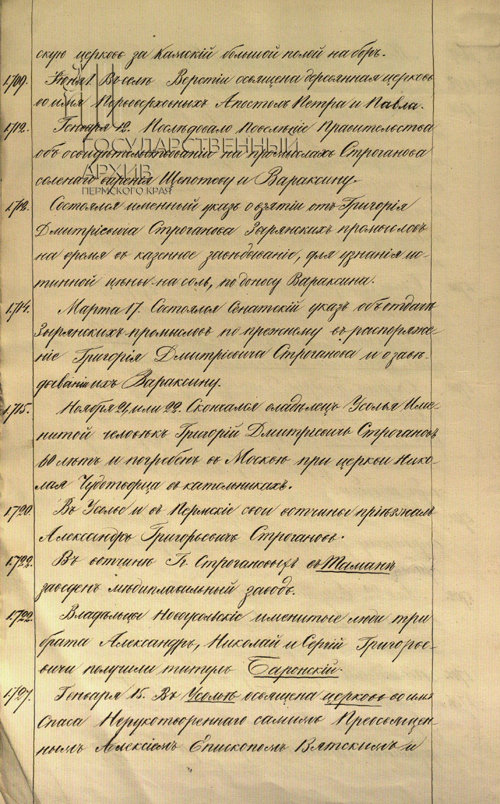 скую церковь за Камскій большой полой на боръ.
1709. Іюня 1 Въ селѣ Верстіи освящена деревянная церковь
во имя Первоверховныхъ Апостолъ Петра и Павла.
1712. Генваря 12. Послѣдовало Повелѣніе Правительства
объ освидѣтельствованіи на промыслахъ Строганова
соленаго варенія Щепотеву и Вараксину.
ГОСУДАРСТВЕННЫЙ
АРХИВ
ПЕРМСКОГО КРАЯ
1712. Состоялся именный указъ о взятіи отъ Григорія
Дмитріевича Строганова Зырянскихъ промысловъ
на время въ казенное завѣдываніе, для узнанія ис-
тинной цѣны на соль, по доносу Вараксина.
1714. Марта 17. Состоялся Сенатскій указъ объ отдачѣ
Зырянскихъ промысловъ по прежнему въ распоряже-
ніе Григорія Дмитріевича Строганова и о завѣ-
дываніи ихъ Вараксину.
1715. Ноября 21 или 22. Скончался владѣлецъ Усолья Име-
нитой человѣкъ Григорій Дмитріевичъ Строгановъ
60 лѣтъ и погребенъ въ Москвѣ при церкви Нико-
лая Чудотворца въ котельникахъ.
1720. Въ Усолье и въ Пермскіе свои вотчины пріѣзжалъ
Александръ Григорьевичъ Строгановъ.
1722. Въ вотчинѣ Гг. Строгановыхъ въ Таманѣ
заведенъ мѣдиплавильный заводъ.
1722. Владѣльцы Новоусольскіе именитые люди три
брата Александръ, Николай и Сергій Григорье-
вичи получили титулъ Баронскій.
1727. Генваря 15. Въ Усольѣ освящена церковь во имя
Спаса Нерукотвореннаго самимъ Преосвящен-
нымъ Алексіемъ Епископомъ Вятскимъ и